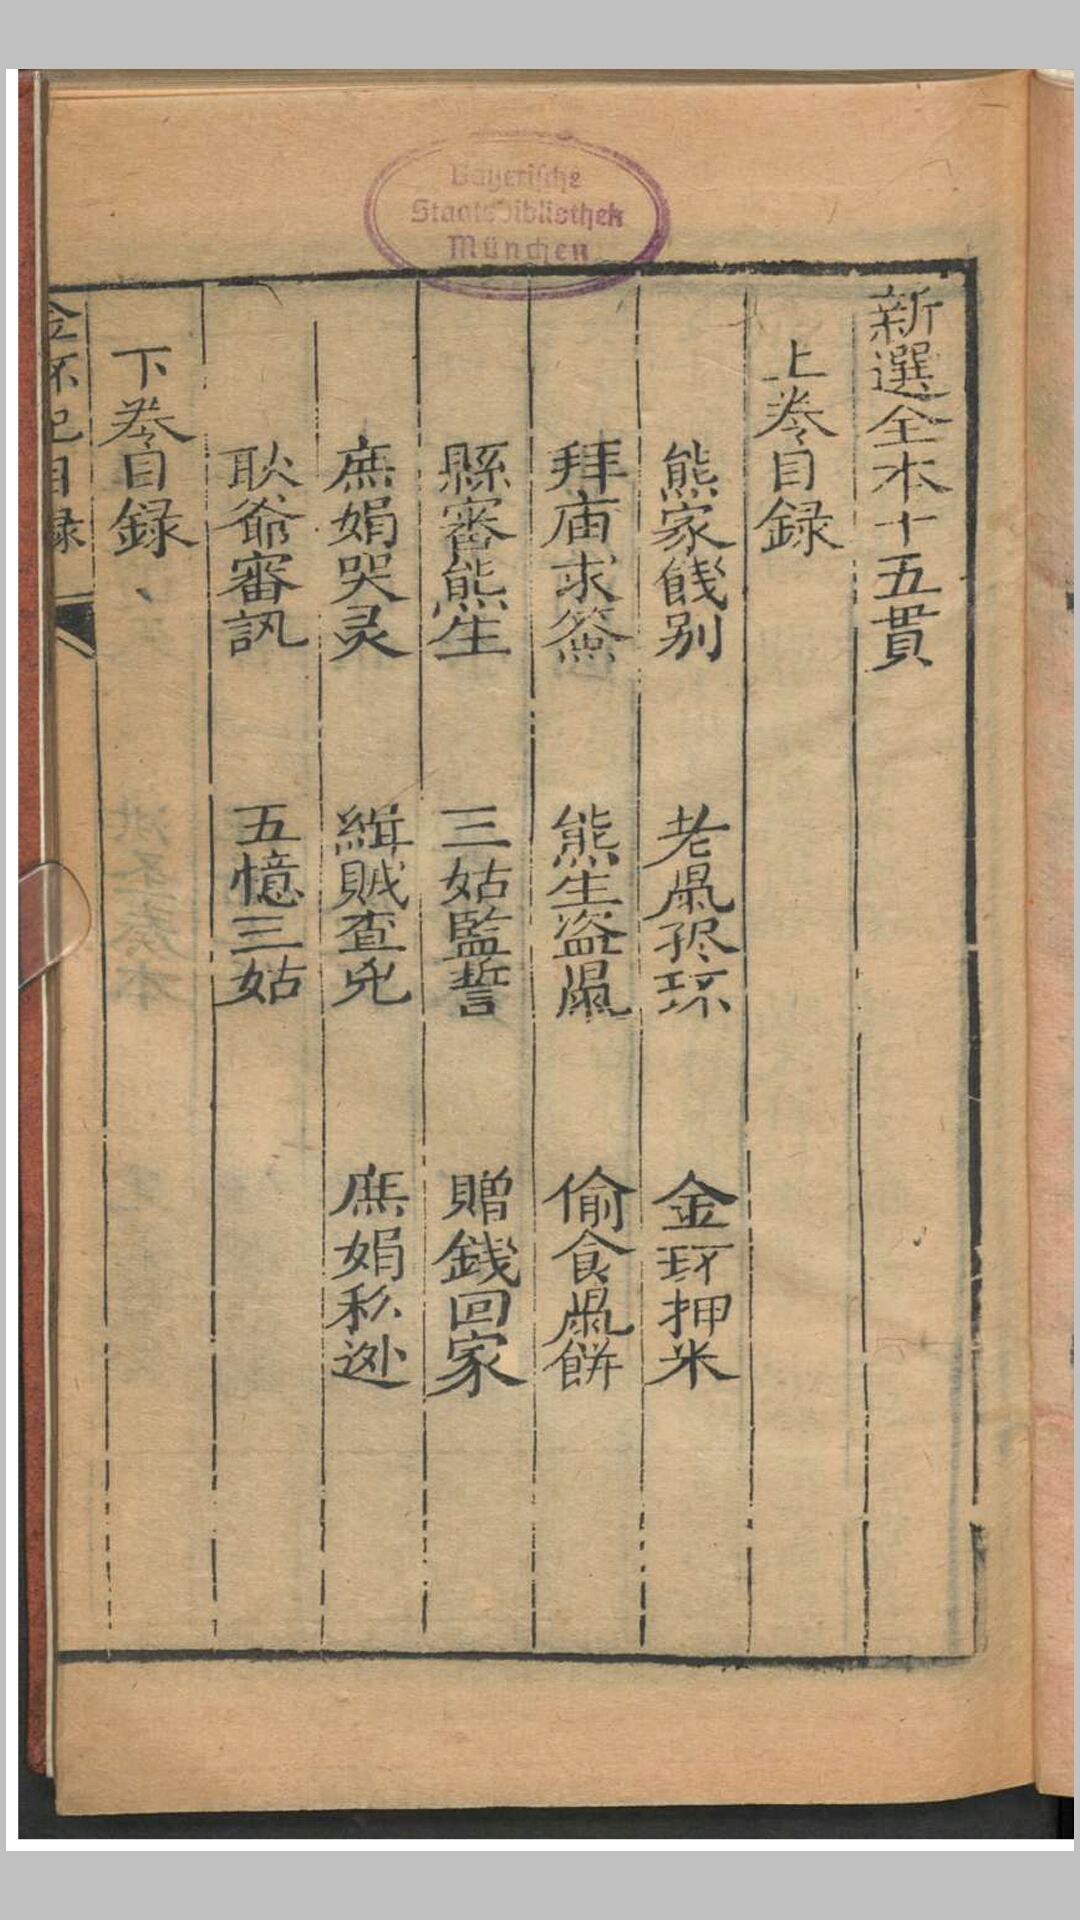 Bayerische
Staatsbibliothek
München
新選全本十五貫
上卷目録
熊家餞别 老鼠孖环 金环押米
拜庙求签 熊生盗鼠 偷食鼠餅
縣審熊生 三姑監誓 贈錢回家
庶娟哭灵 緝賊查兇 庶娟私逃
耿爺審訊 五憶三姑
下卷目録
金环记目録